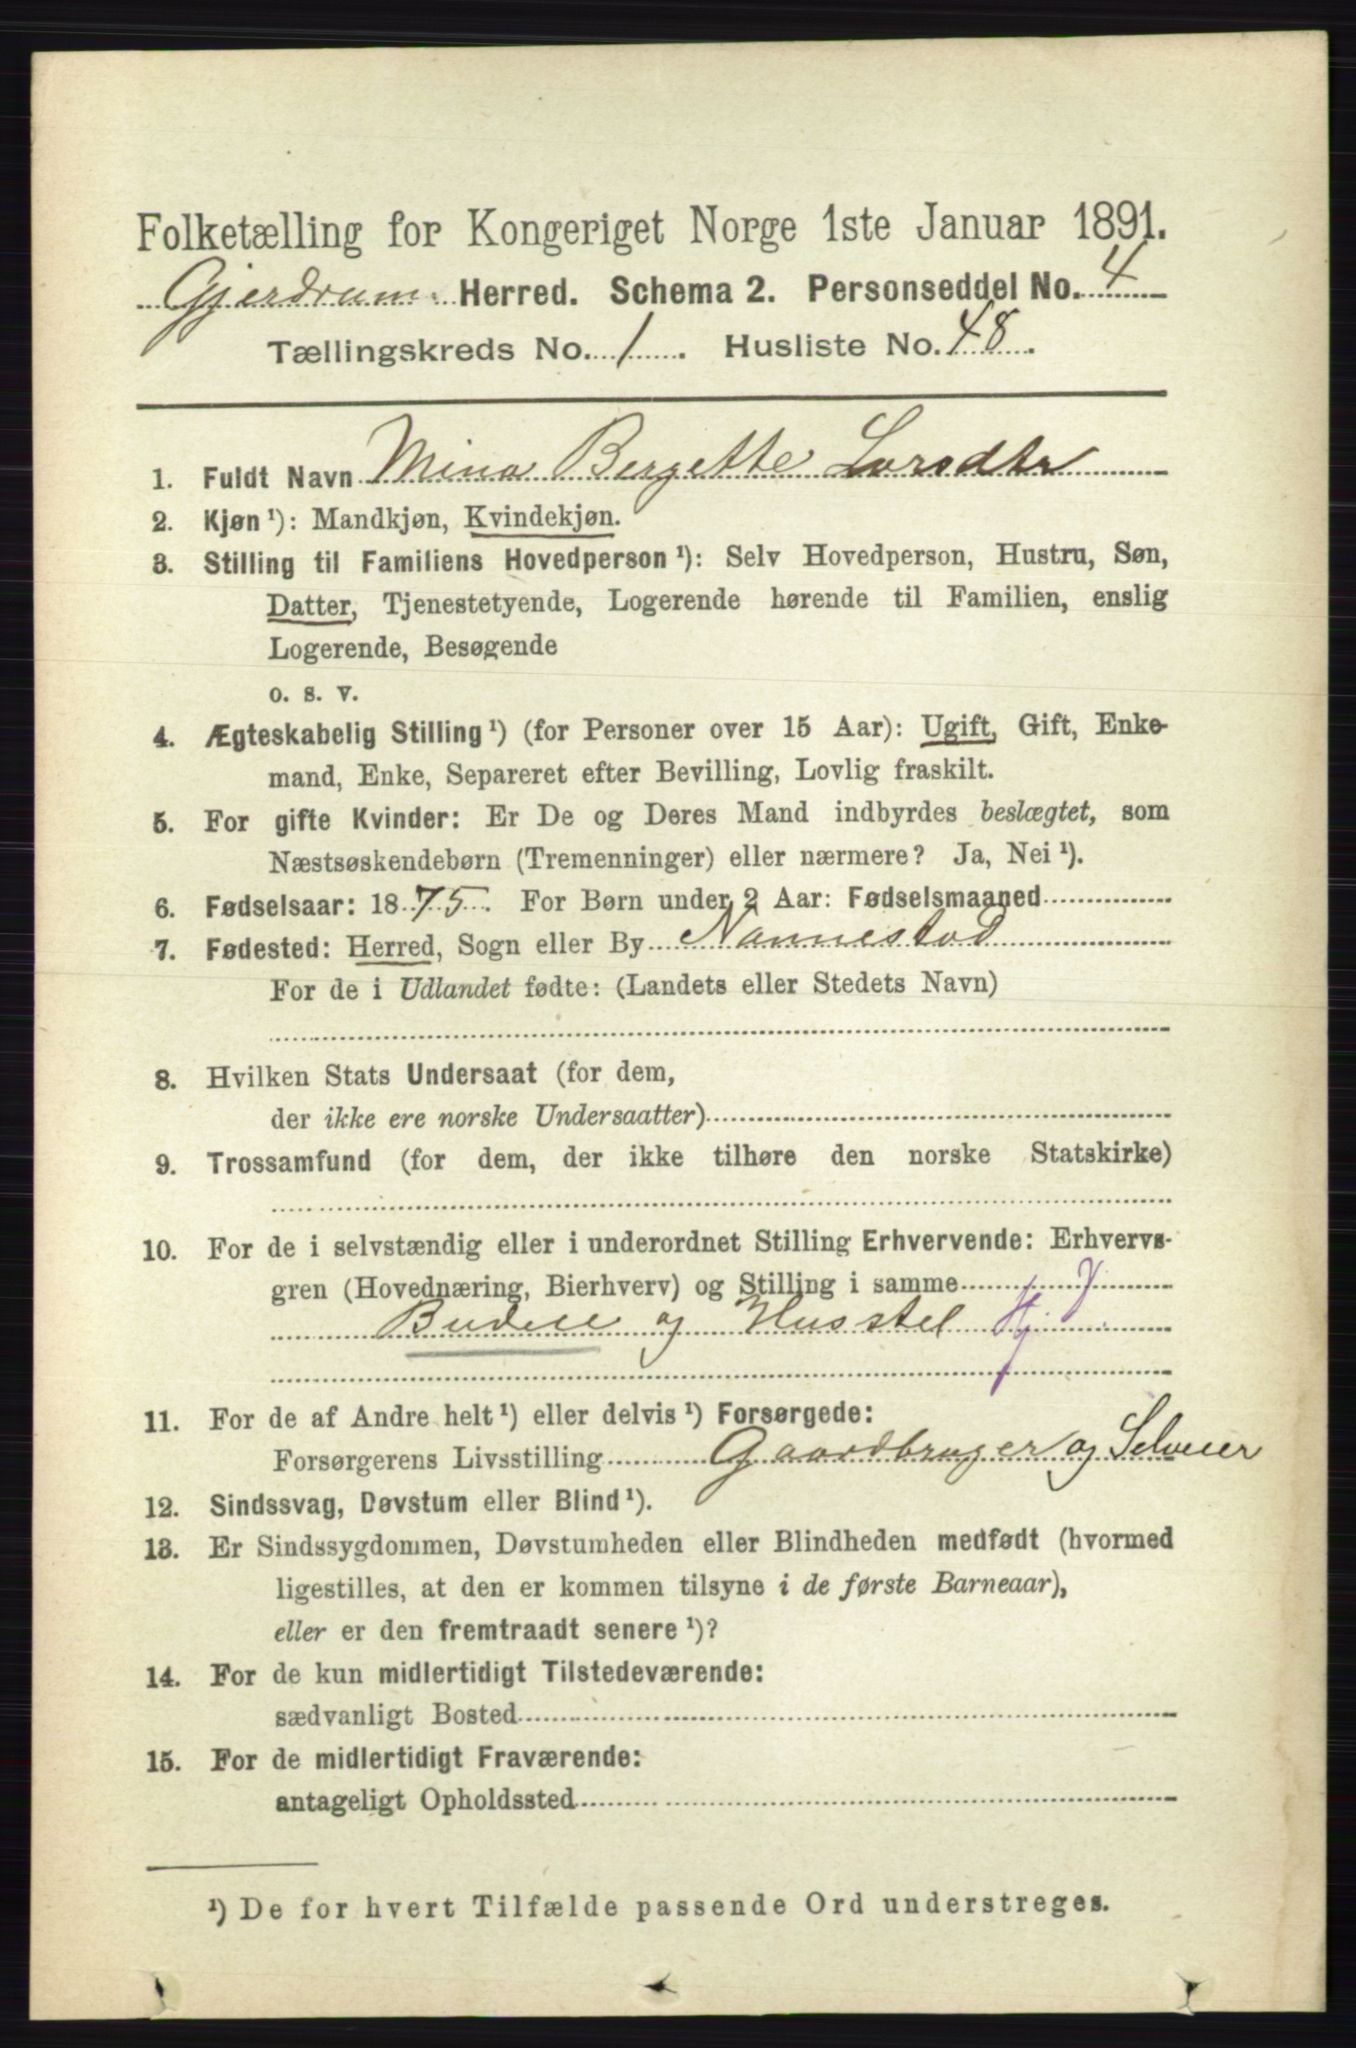 Folketælling for Kongeriget Norge 1ste Januar 1891.
Gjerdrum Herred. Schema 2. Personseddel No. 4
Tællingskreds No. 1. Husliste No. 48.
1. Fuldt Navn Mina Bergette Larsdtr
2. Kjøn ¹): Mandkjøn, Kvindekjøn.
3. Stilling til Familiens Hovedperson ¹): Selv Hovedperson, Hustru, Søn,
Datter, Tjenestetyende, Logerende hørende til Familien, enslig
Logerende, Besøgende
o. s. v.
4. Ægteskabelig Stilling ¹) (for Personer over 15 Aar): Ugift, Gift, Enke-
mand, Enke, Separeret efter Bevilling, Lovlig fraskilt.
5. For gifte Kvinder: Er De og Deres Mand indbyrdes beslægtet, som
Næstsøskendebørn (Tremenninger) eller nærmere? Ja, Nei ¹).
6. Fødselsaar: 1875. For Børn under 2 Aar: Fødselsmaaned
7. Fødested: Herred, Sogn eller By Nannestad
For de i Udlandet fødte: (Landets eller Stedets Navn)
8. Hvilken Stats Undersaat (for dem,
der ikke ere norske Undersaatter)
9. Trossamfund (for dem, der ikke tilhøre den norske Statskirke)
10. For de i selvstændig eller i underordnet Stilling Erhvervende: Erhvervs-
gren (Hovednæring, Bierhverv) og Stilling i samme
Budeie og Husstel Hj
11. For de af Andre helt ¹) eller delvis ¹) Forsørgede:
Forsørgerens Livsstilling Gaardbruger og Selveier
12. Sindssvag, Døvstum eller Blind ¹).
13. Er Sindssygdommen, Døvstumheden eller Blindheden medfødt (hvormed
ligestilles, at den er kommen tilsyne i de første Barneaar),
eller er den fremtraadt senere ¹)?
14. For de kun midlertidigt Tilstedeværende:
sædvanligt Bosted
15. For de midlertidigt Fraværende:
antageligt Opholdssted
¹) De for hvert Tilfælde passende Ord understreges.